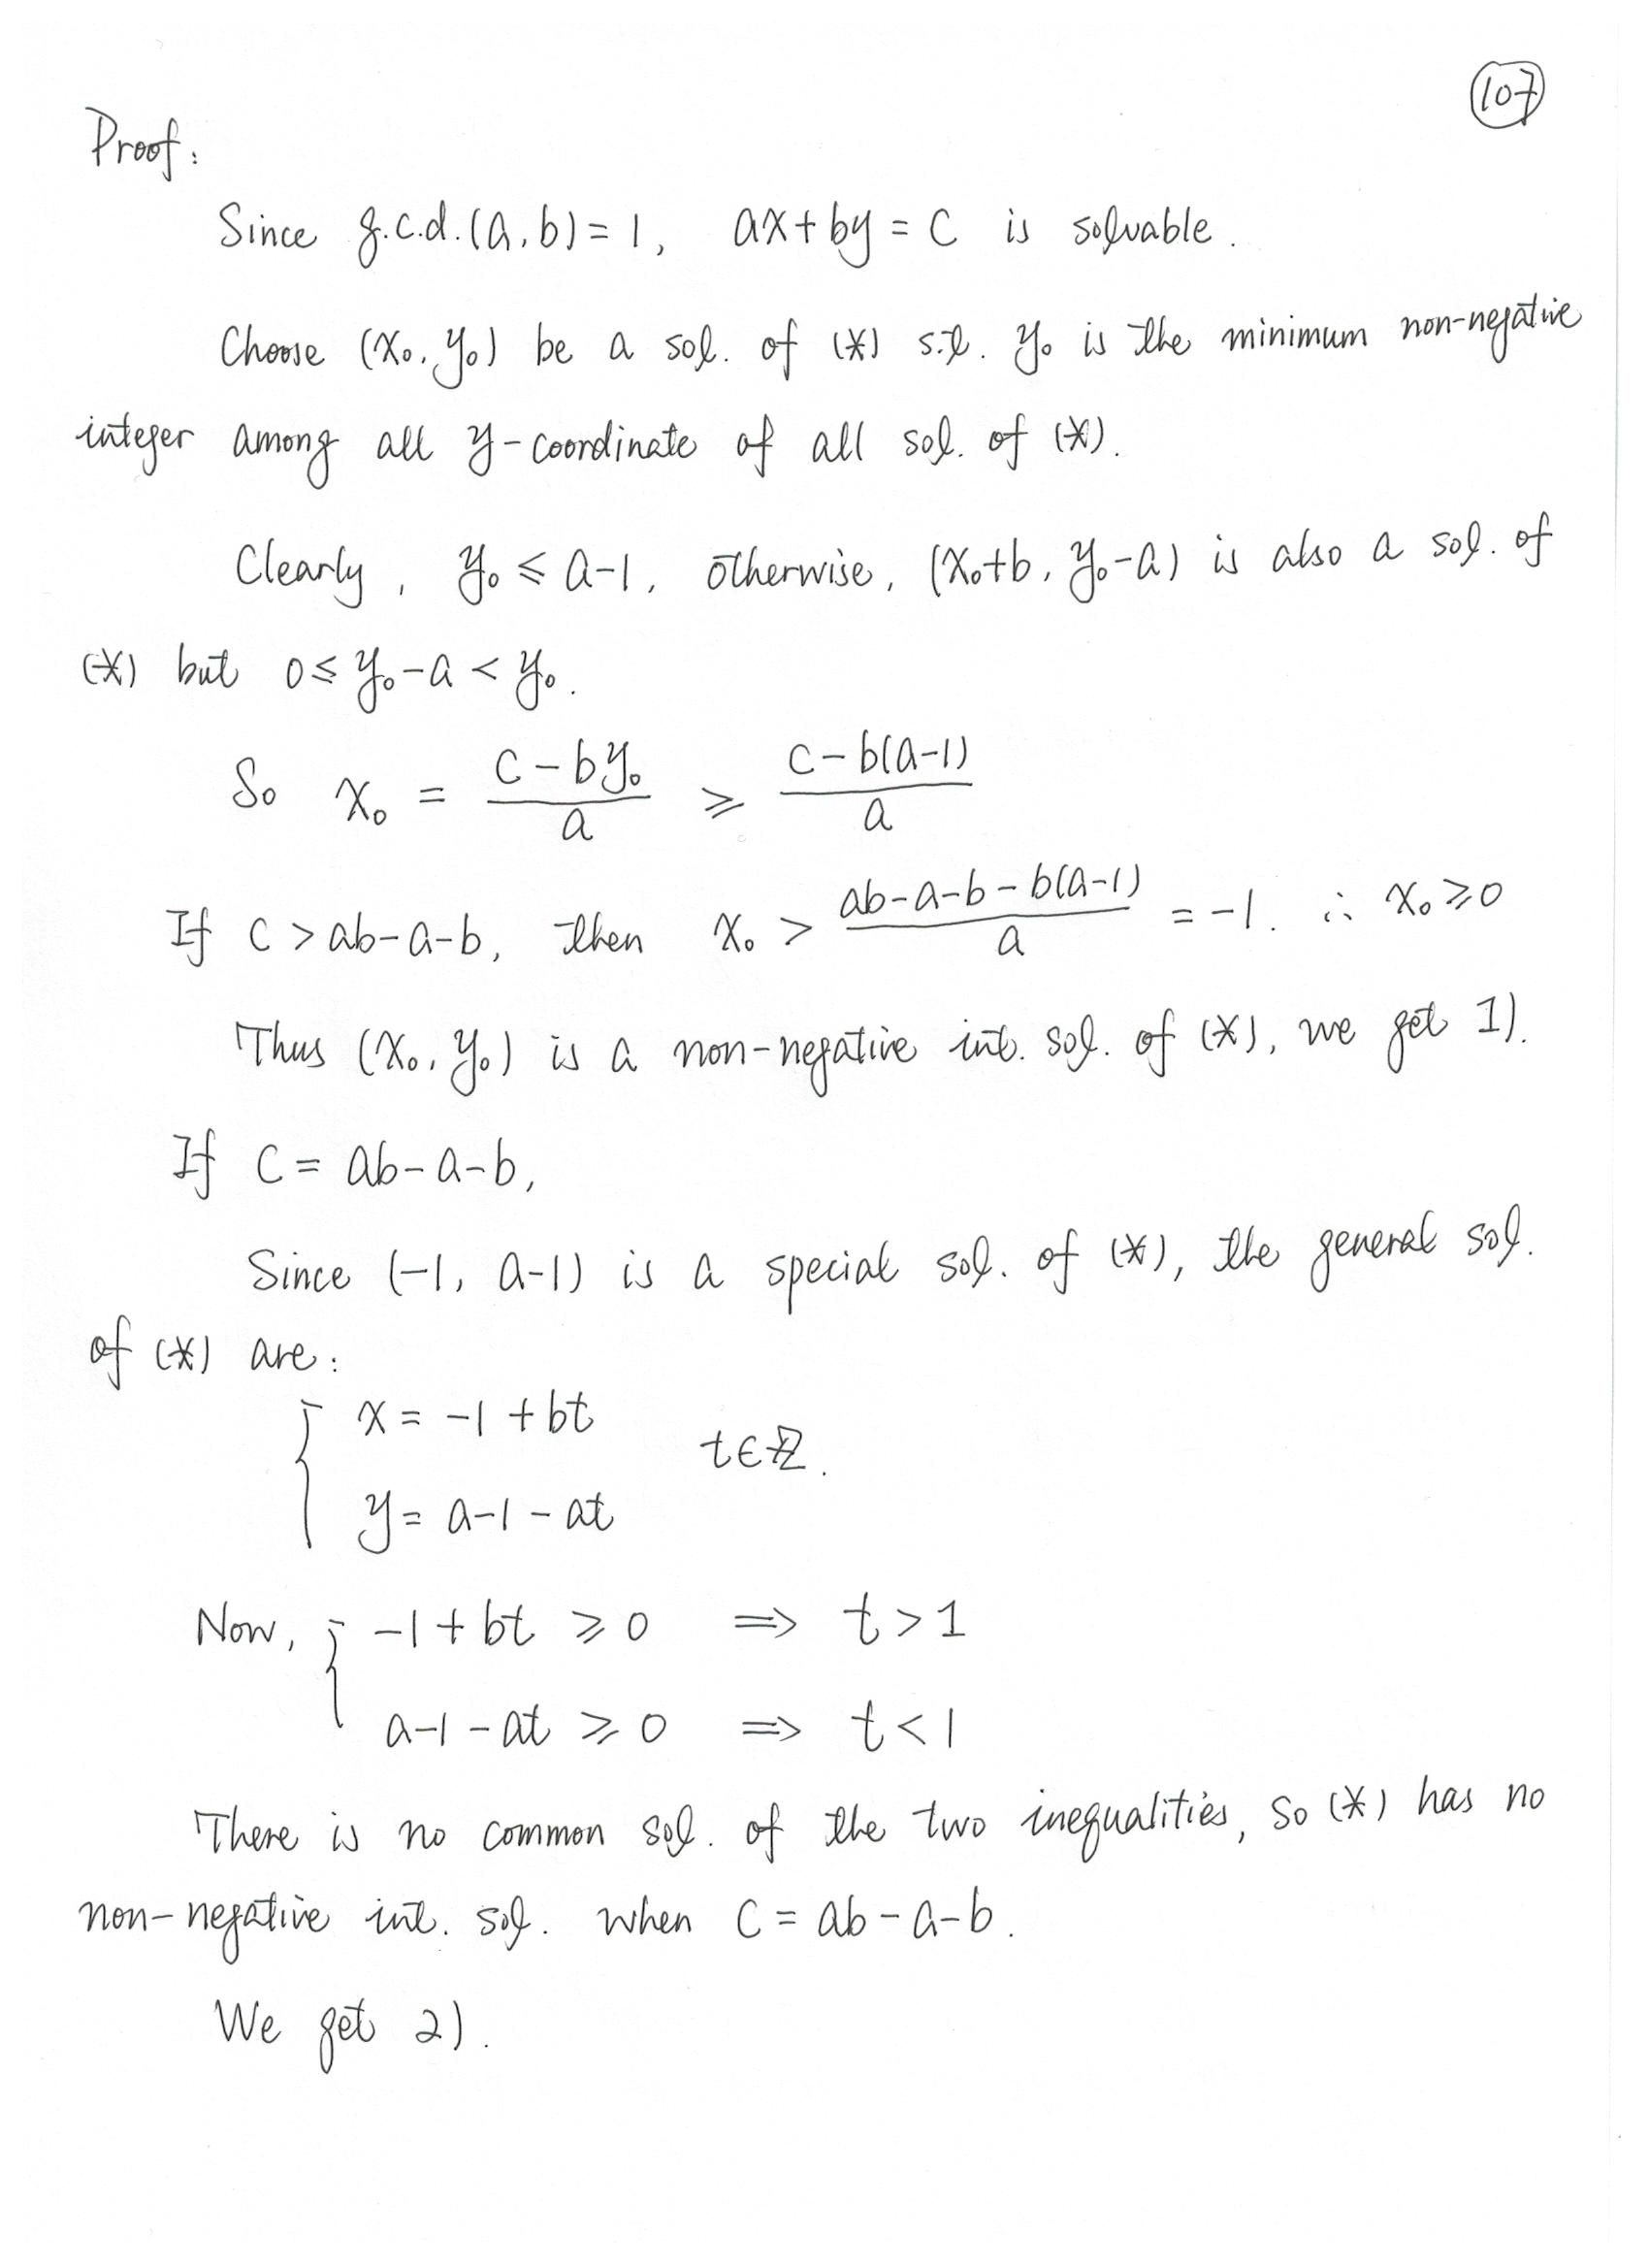 107
Proof:
Since g.c.d.(a,b)=1, ax+by=c is solvable.
Choose (x₀,y₀) be a sol. of (*) s.t. y₀ is the minimum non-negative
integer among all y-coordinate of all sol. of (*).
Clearly, y₀ ≤ a-1, otherwise, (x₀+b, y₀-a) is also a sol. of
(*) but 0 ≤ y₀-a < y₀.
So x₀ = (c-by₀)/a ≥ (c-b(a-1))/a
If c > ab-a-b, then x₀ > (ab-a-b-b(a-1))/a = -1. ∴ x₀ ≥ 0
Thus (x₀,y₀) is a non-negative int. sol. of (*), we get 1).
If c = ab-a-b,
Since (-1, a-1) is a special sol. of (*), the general sol.
of (*) are:
{ x = -1 + bt
t∈ℤ.
y = a-1-at
Now, { -1+bt ≥ 0 ⟹ t > 1
a-1-at ≥ 0 ⟹ t < 1
There is no common sol. of the two inequalities, so (*) has no
non-negative int. sol. when c = ab-a-b.
We get 2).